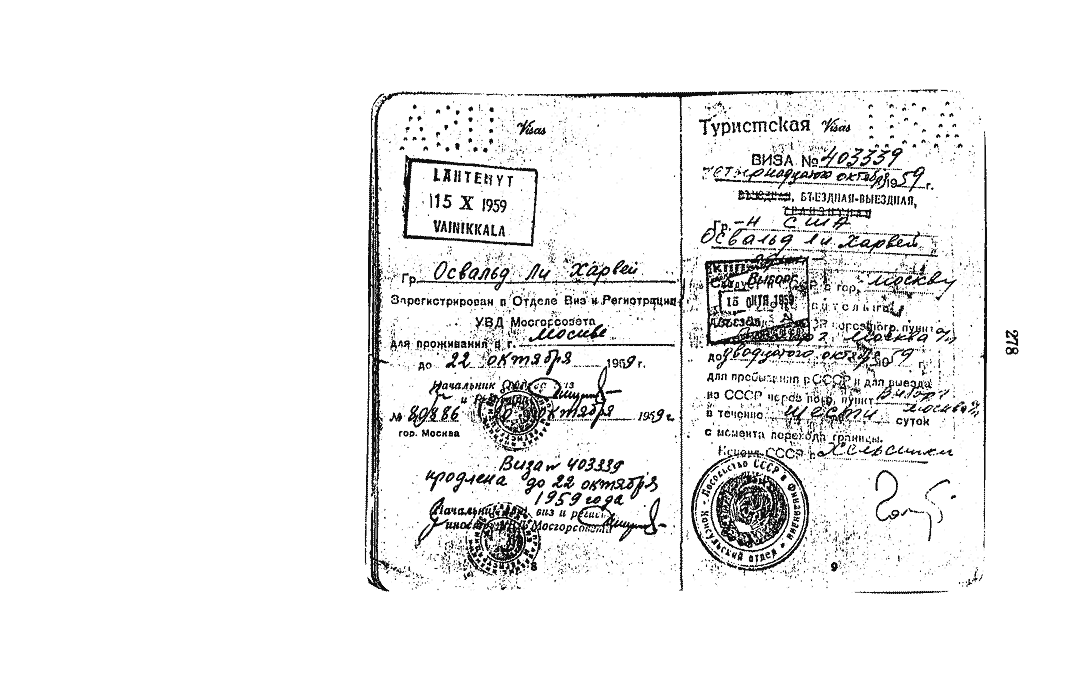 Visas
LÄHTENYT
15 X 1959
VAINIKKALA
Гр. Освальд Ли Харвей
Зарегистрирован в Отделе Виз и Регистрации
УВД Мосгорсовета
для проживания в г. Москве
до 22 октября 1959 г.
Начальник виз
№ 89886 октября 1959 г.
гор. Москва
Виза № 403339
продлена до 22 октября
1959 года
Начальник виз и
Мосгорсовета
8
Туристская Visas
ВИЗА № 403339
октября 1959 г.
ВЪЕЗДНАЯ-ВЫЕЗДНАЯ,
ТРАНЗИТНАЯ
Гр-н США
Освальд Ли Харвей
КПП
Выборг
Москву
15 ОКТЯ 1959
до двадцатого октября 1959 г.
для пребывания в СССР и для выезда
из СССР через погр. пункт Выборг
в течение шести суток
с момента перехода границы.
Консул СССР в Хельсинки
Посольство СССР в Финляндии
Консульский отдел
9
278